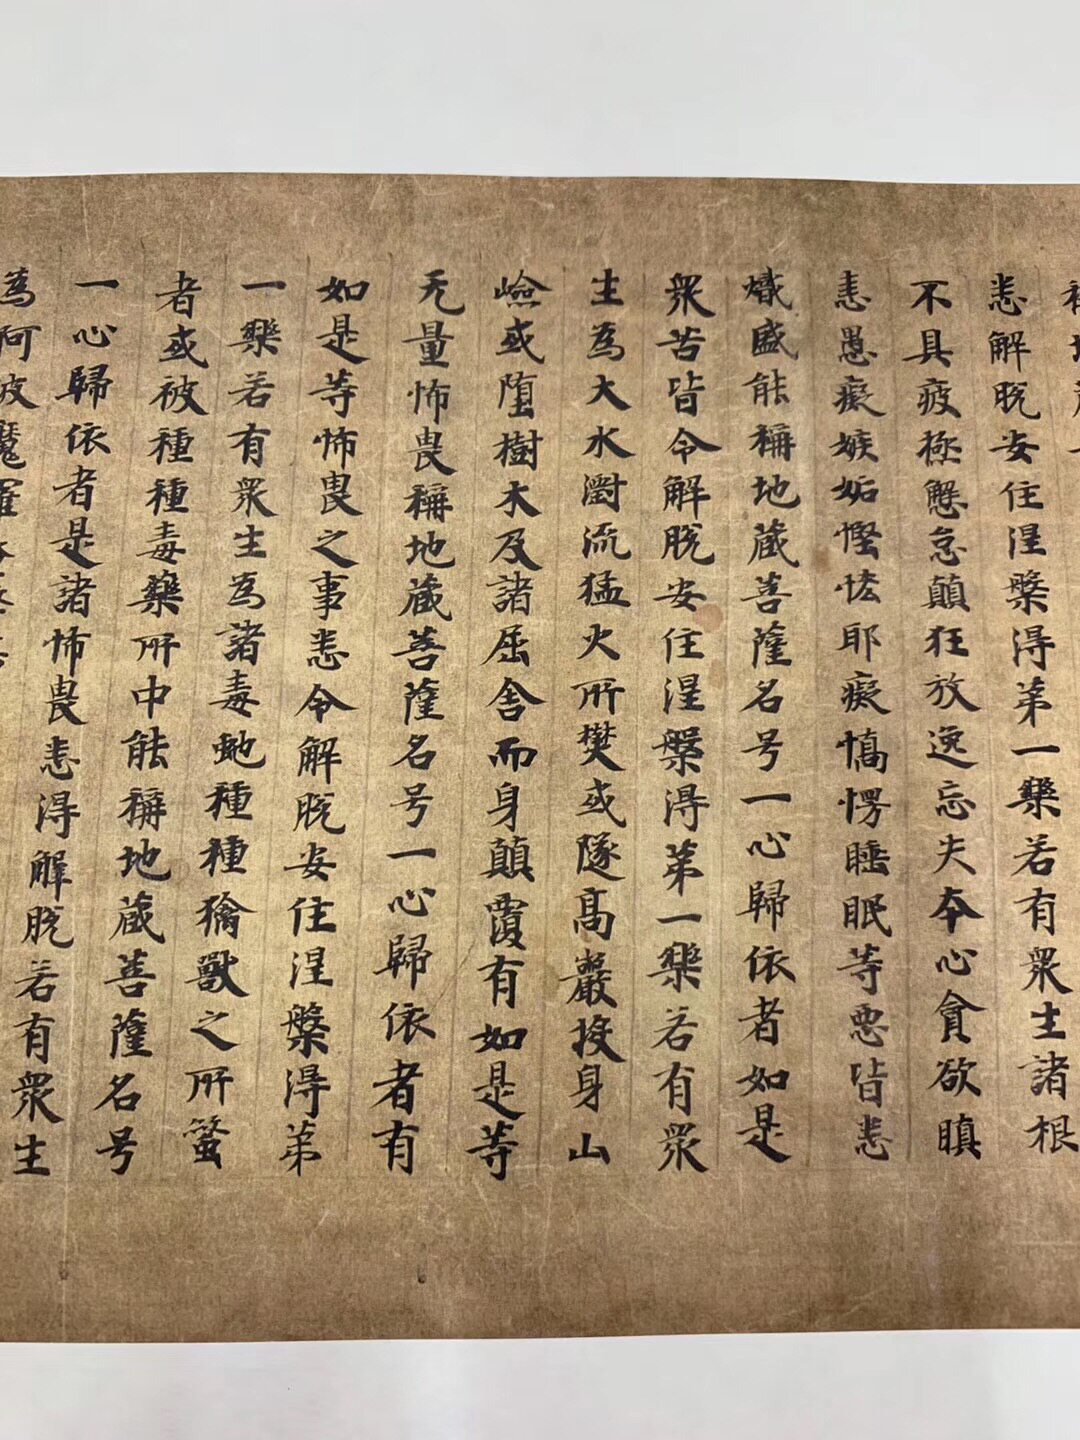 悉解脫安住涅槃得第一樂若有衆生諸根
不具疲極懈怠顛狂放逸忘失夲心貪欲瞋
恚愚癡嫉妬慳悋耶癡憍愕睡眠等惡皆悉
熾盛能稱地藏菩薩名号一心歸依者如是
衆苦皆令解脫安住涅槃得第一樂若有衆
生為大水㵎流猛火所焚或墜高巖投身山
嶮或墮樹木及諸屈舍而身顛覆有如是等
无量怖畏稱地藏菩薩名号一心歸依者有
如是等怖畏之事悉令解脫安住涅槃得第
一樂若有衆生為諸毒虵種種獦獸之所螫
者或被種種毒藥所中能稱地藏菩薩名号
一心歸依者是諸怖畏悉得解脫若有衆生
為阿波魔羅